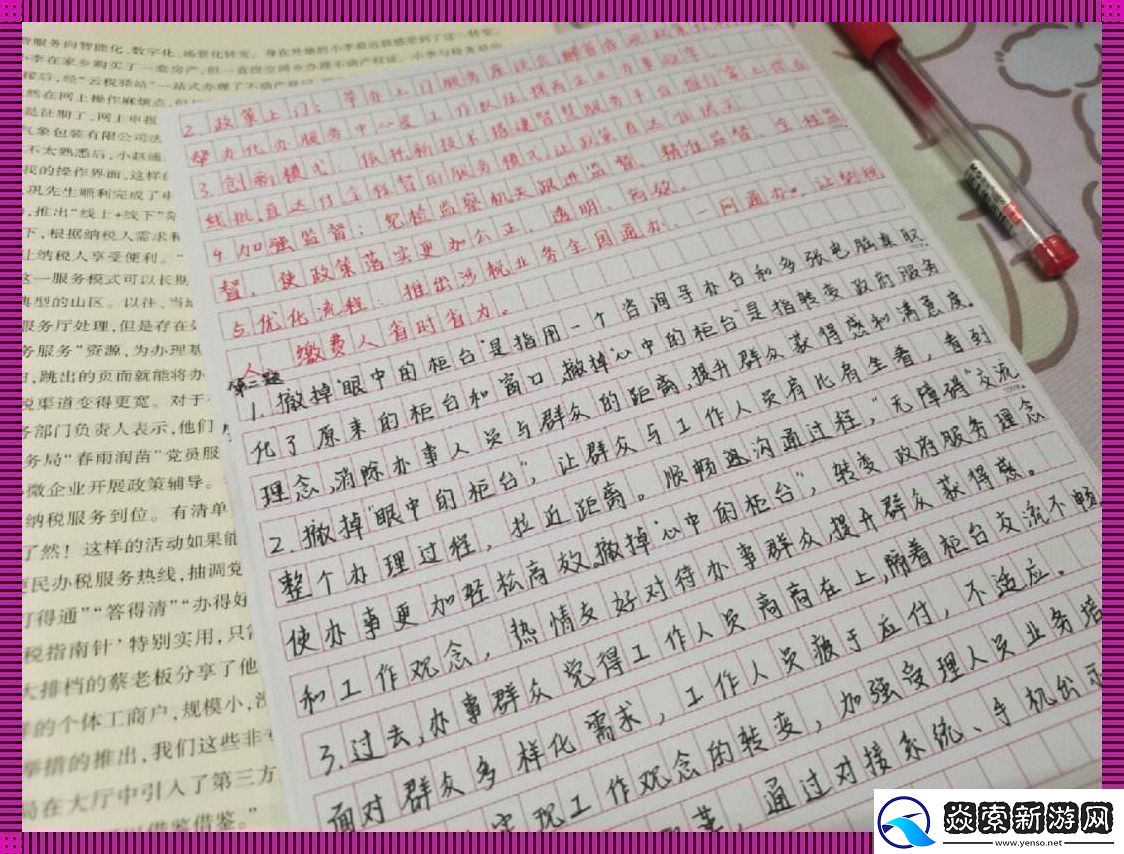 服务向智能化、数字化、场景化转变。身在外地的小李最近就感受到了这一转变。
小李在家乡购买了一套房产，但一直没空回乡办理不动产权证。小李与税务局的
接后，经“云税驿站”一站式办理了不动产登记
然在网上操作麻烦点，但
是征期了，网上申报
气象包装有限公司法
不太熟悉后，小赵通
我的操作界面，这样的
巩先生顺利完成了申
，推出“线上+线下”
下，根据纳税人需求
让纳税人享受便利。
这一服务模式可以长期
典型的山区。以往，当
服务厅处理，但是存在
务服务”资源，为办理基
，跳出的页面就能将办
税渠道变得更宽。对于
务部门负责人表示，他们
务局“春雨润苗”党员服
小微企业开展政策辅导。
纳税服务到位。有清单
了然！这样的活动如果能
便民办税服务热线，抽调党
打得通”“答得清”“办得好
税指南针’特别实用，只需
大排档的蔡老板分享了他
样的个体工商户，规模小，没
举措的推出，我们这些非
局在大厅中引入了第三方
以借鉴借鉴。”
2.政策上门：举办上门服务座谈会，解
帮办代办服务中心发工作队伍，提高企业办事
3.创新模式：依托新技术搭建智慧服务平台，推行掌上
线批、直达付全程督的服务模式，让政策直达
4.加强监督：纪检监察机关跟进监督、精准监督、全程监
督，使政策落实更加公正、透明、高效。
5.优化流程：推出涉税业务全国通办、一网通办。让纳税
人、缴费人省时省力。
第二题
1.撤掉“眼中的柜台”是指用一个咨询导办台和多张电脑桌取
代了原来的柜台和窗口，撤掉“心中的柜台”是指转变政府服务
理念，消除办事人员与群众的距离，提升群众获得感和满意度。
2.撤掉“眼中的柜台”，让群众与工作人员肩比肩坐着，看到
整个办理过程，拉近距离。顺畅沟通过程，“无障碍”交流
使办事更加轻松高效。撤掉“心中的柜台”，转变政府服务理念
和工作观念，热情友好对待办事群众，提升群众获得感。
3.过去，办事群众觉得工作人员高高在上，隔着柜台交流不畅
面对群众多样化需求，工作人员疲于应付，不适应。
实现工作观念的转变，加强受理人员业务培
通过对接系统、手机出示
焱索新游网
www.yenso.net